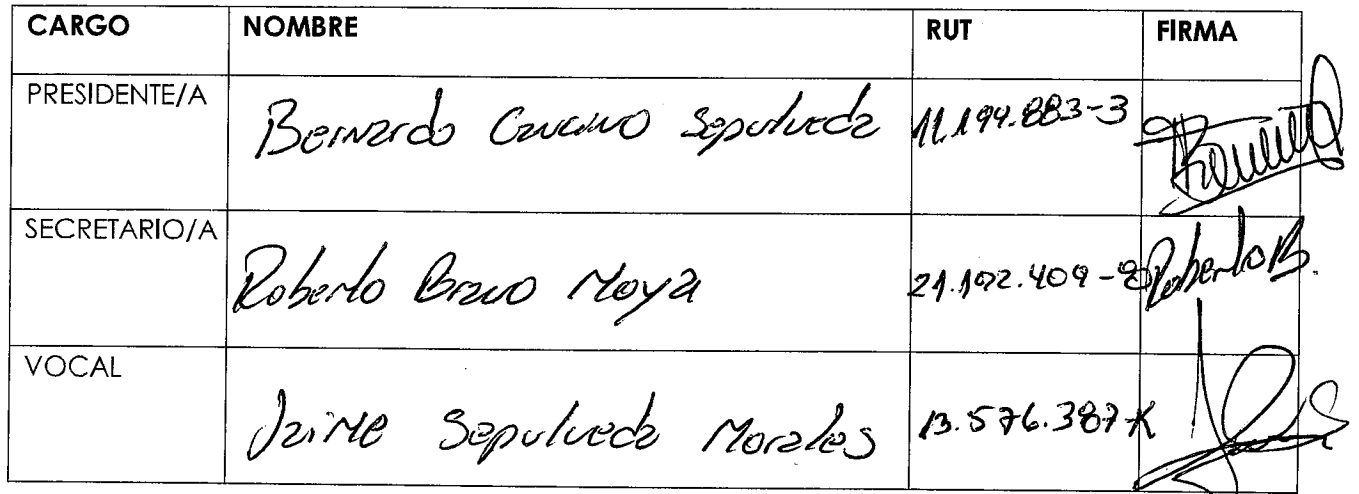 CARGO NOMBRE RUT FIRMA
PRESIDENTE/A Bernardo Cancino Sepulveda 11.199.883-3
SECRETARIO/A Roberto Bravo Moya 21.192.409-8 Roberto B.
VOCAL Jaime Sepulveda Morales 13.576.387-K